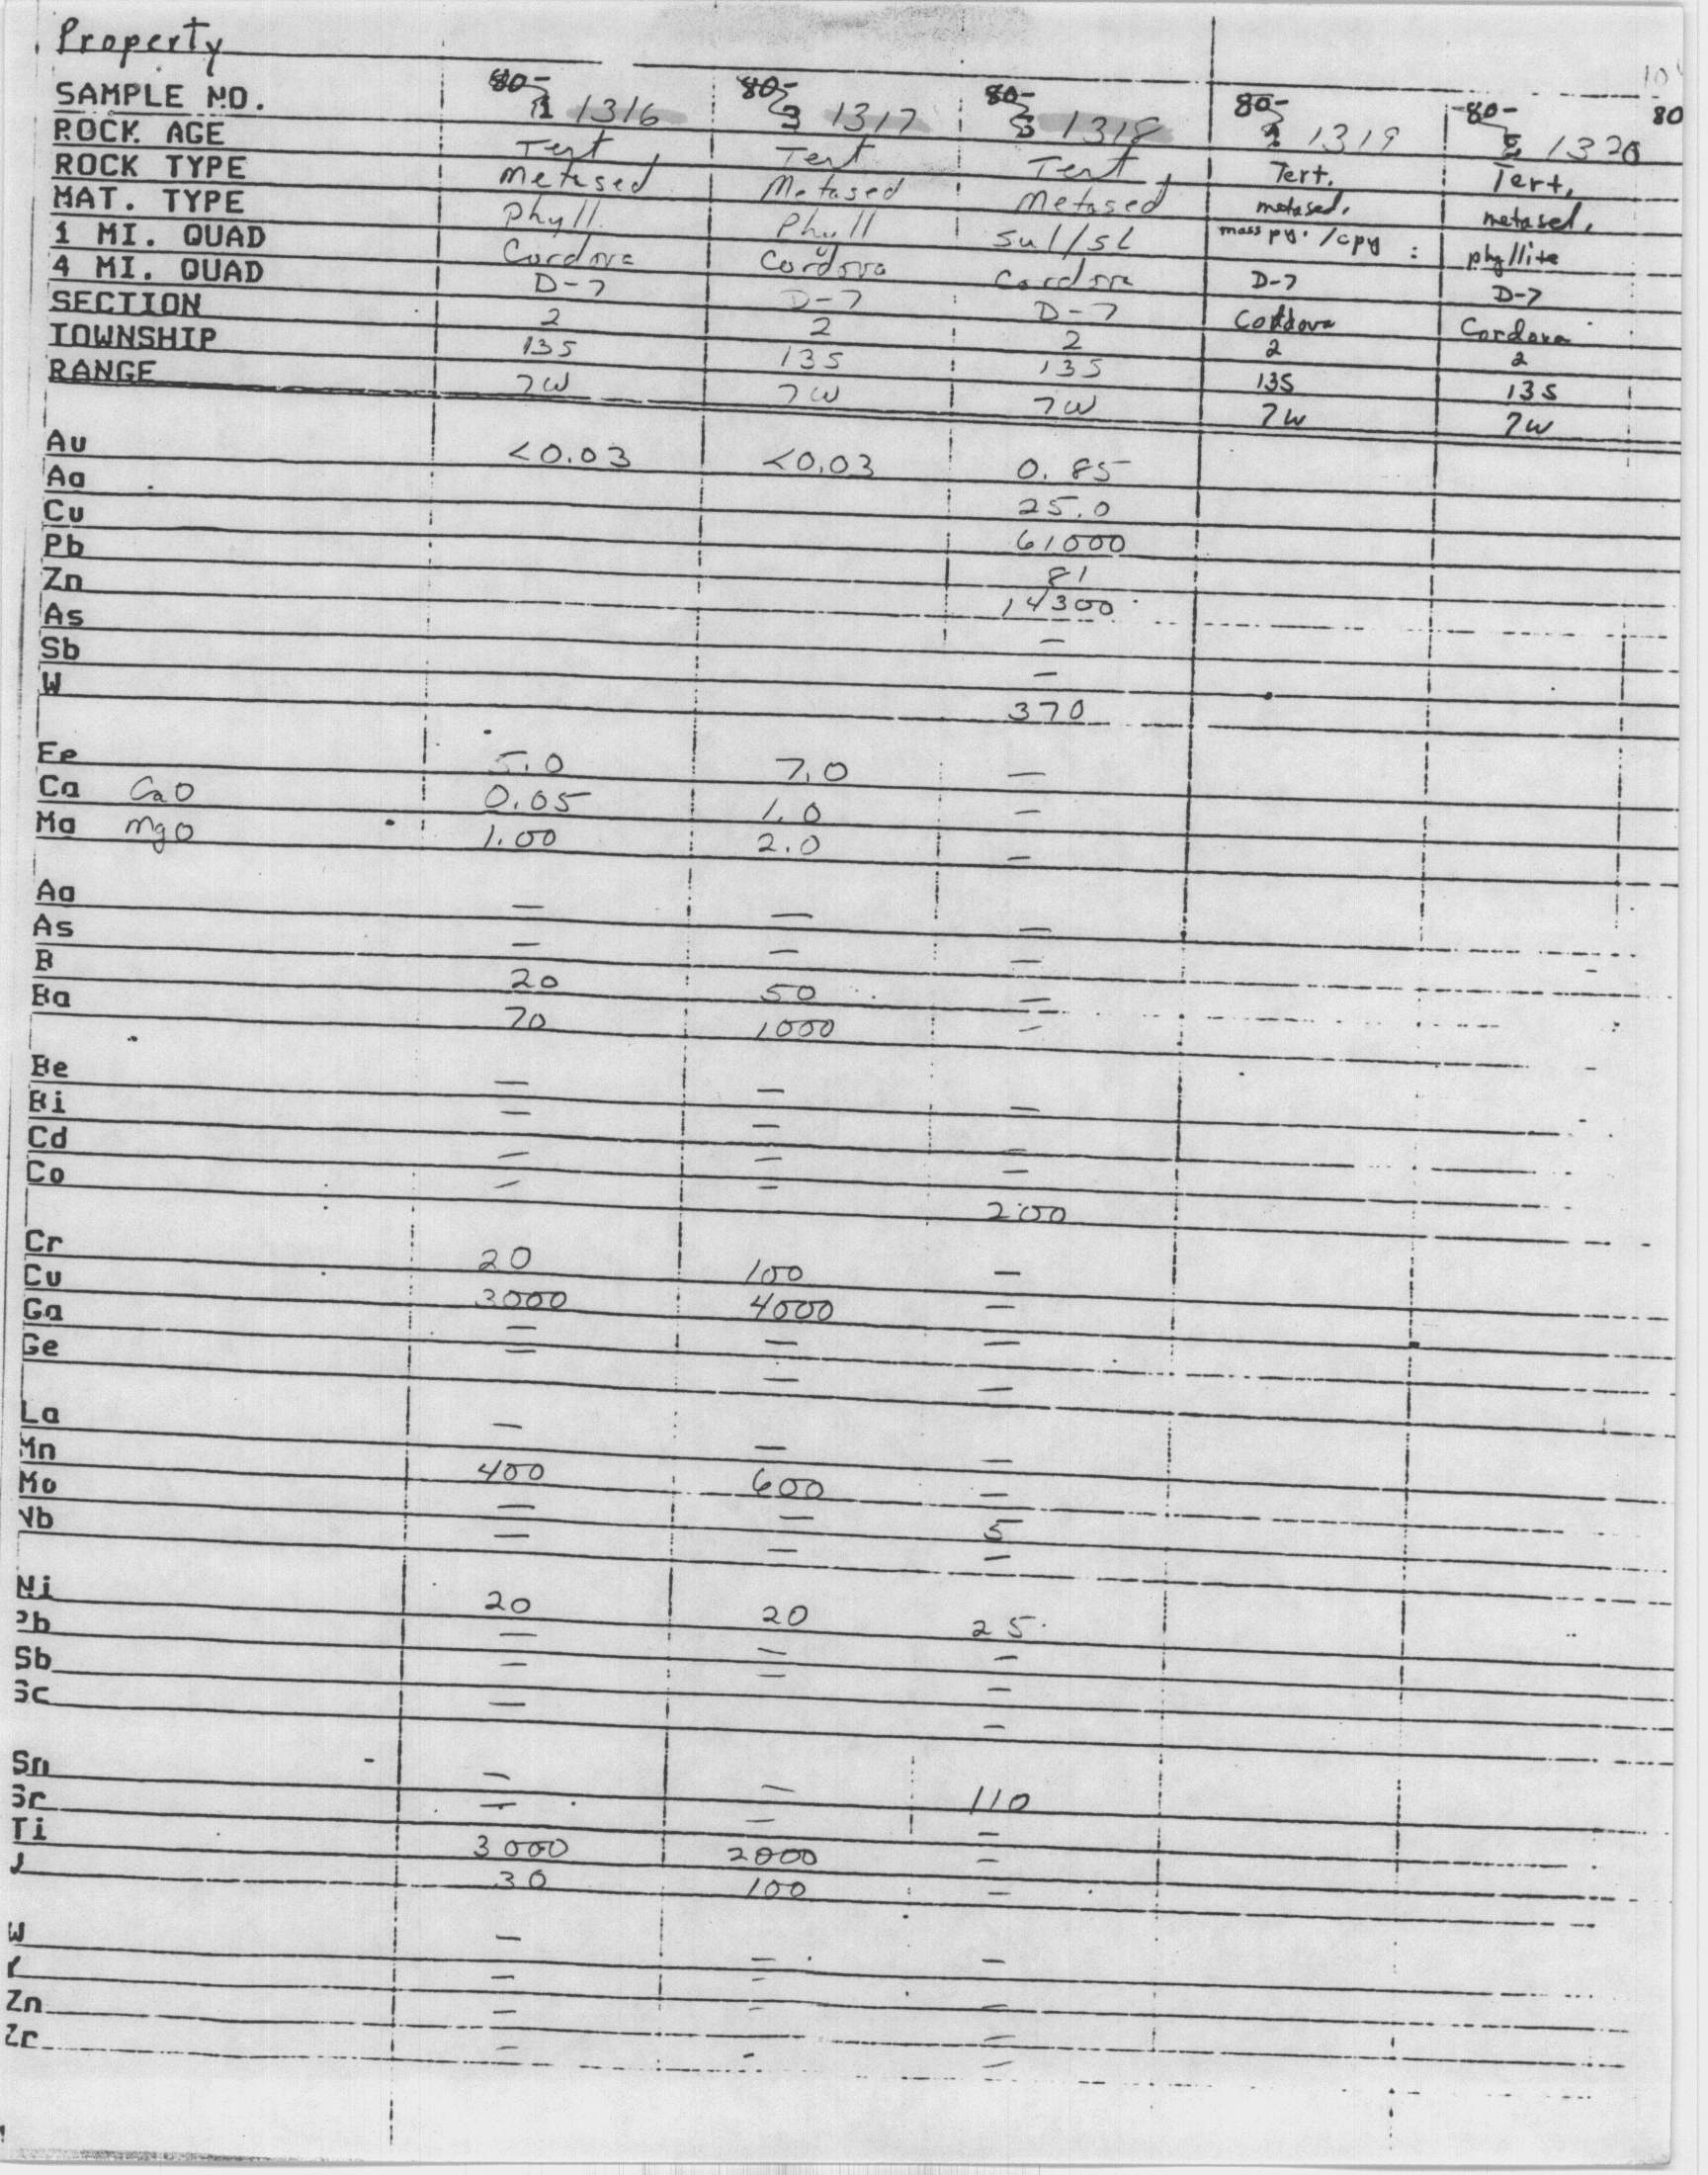 Property
SAMPLE NO. 80- 1316 80- 1317 80- 1318 80- 1319 80- 1320 80
ROCK AGE Tert Tert Tert Tert. Tert.
ROCK TYPE Metased Metased Metased metased. metased.
MAT. TYPE Phyll Phyll Sul/sl mass py. /cpy : phyllite
1 MI. QUAD Cordova Cordova Cordova D-7 D-7
4 MI. QUAD D-7 D-7 D-7 Cordova Cordova
SECTION 2 2 2 2 2
TOWNSHIP 13S 13S 13S 13S 13S
RANGE 7W 7W 7W 7W 7W
Au <0.03 <0.03 0.85
Ag 25.0
Cu 61000
Pb 81
Zn 14300
As —
Sb —
W 370
Fe 5.0 7.0 —
Ca CaO 0.05 1.0 —
Mg MgO 1.00 2.0 —
Ag — — —
As — — —
B 20 50 —
Ba 70 1000 —
Be — — —
Bi — — —
Cd — — —
Co — — 200
Cr 20 100 —
Cu 3000 4000 —
Ga — — —
Ge — — —
La — — —
Mn 400 600 —
Mo — — 5
Nb — — —
Ni 20 20 25
Pb — — —
Sb — — —
Sc — —
Sn — — 110
Sr — — —
Ti 3000 2000 —
V 30 100 —
W — — —
Y — — —
Zn — — —
Zr — — —